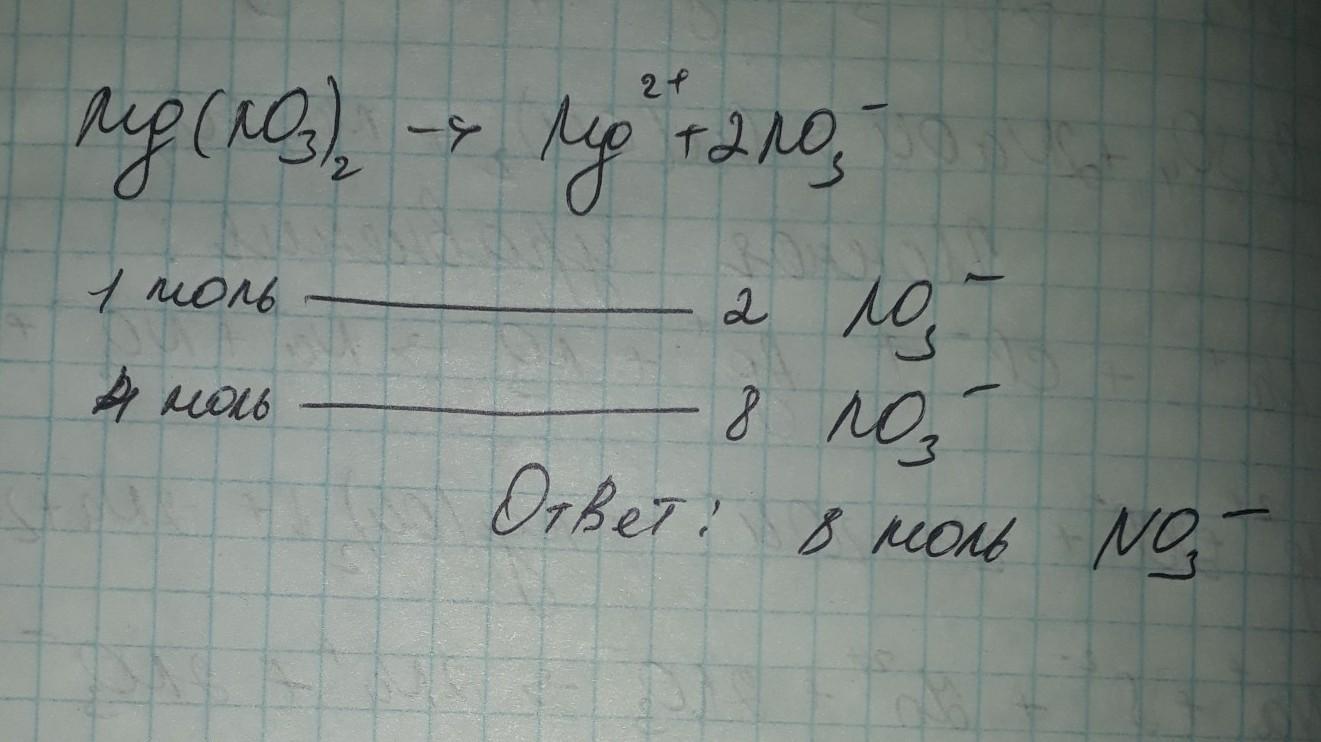 Mg(NO₃)₂ → Mg²⁺ + 2NO₃⁻
1 моль —— 2 NO₃⁻
4 моль —— 8 NO₃⁻
Ответ: 8 моль NO₃⁻